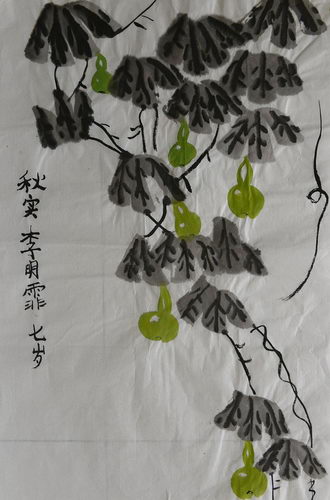 秋实 李明霏 七岁